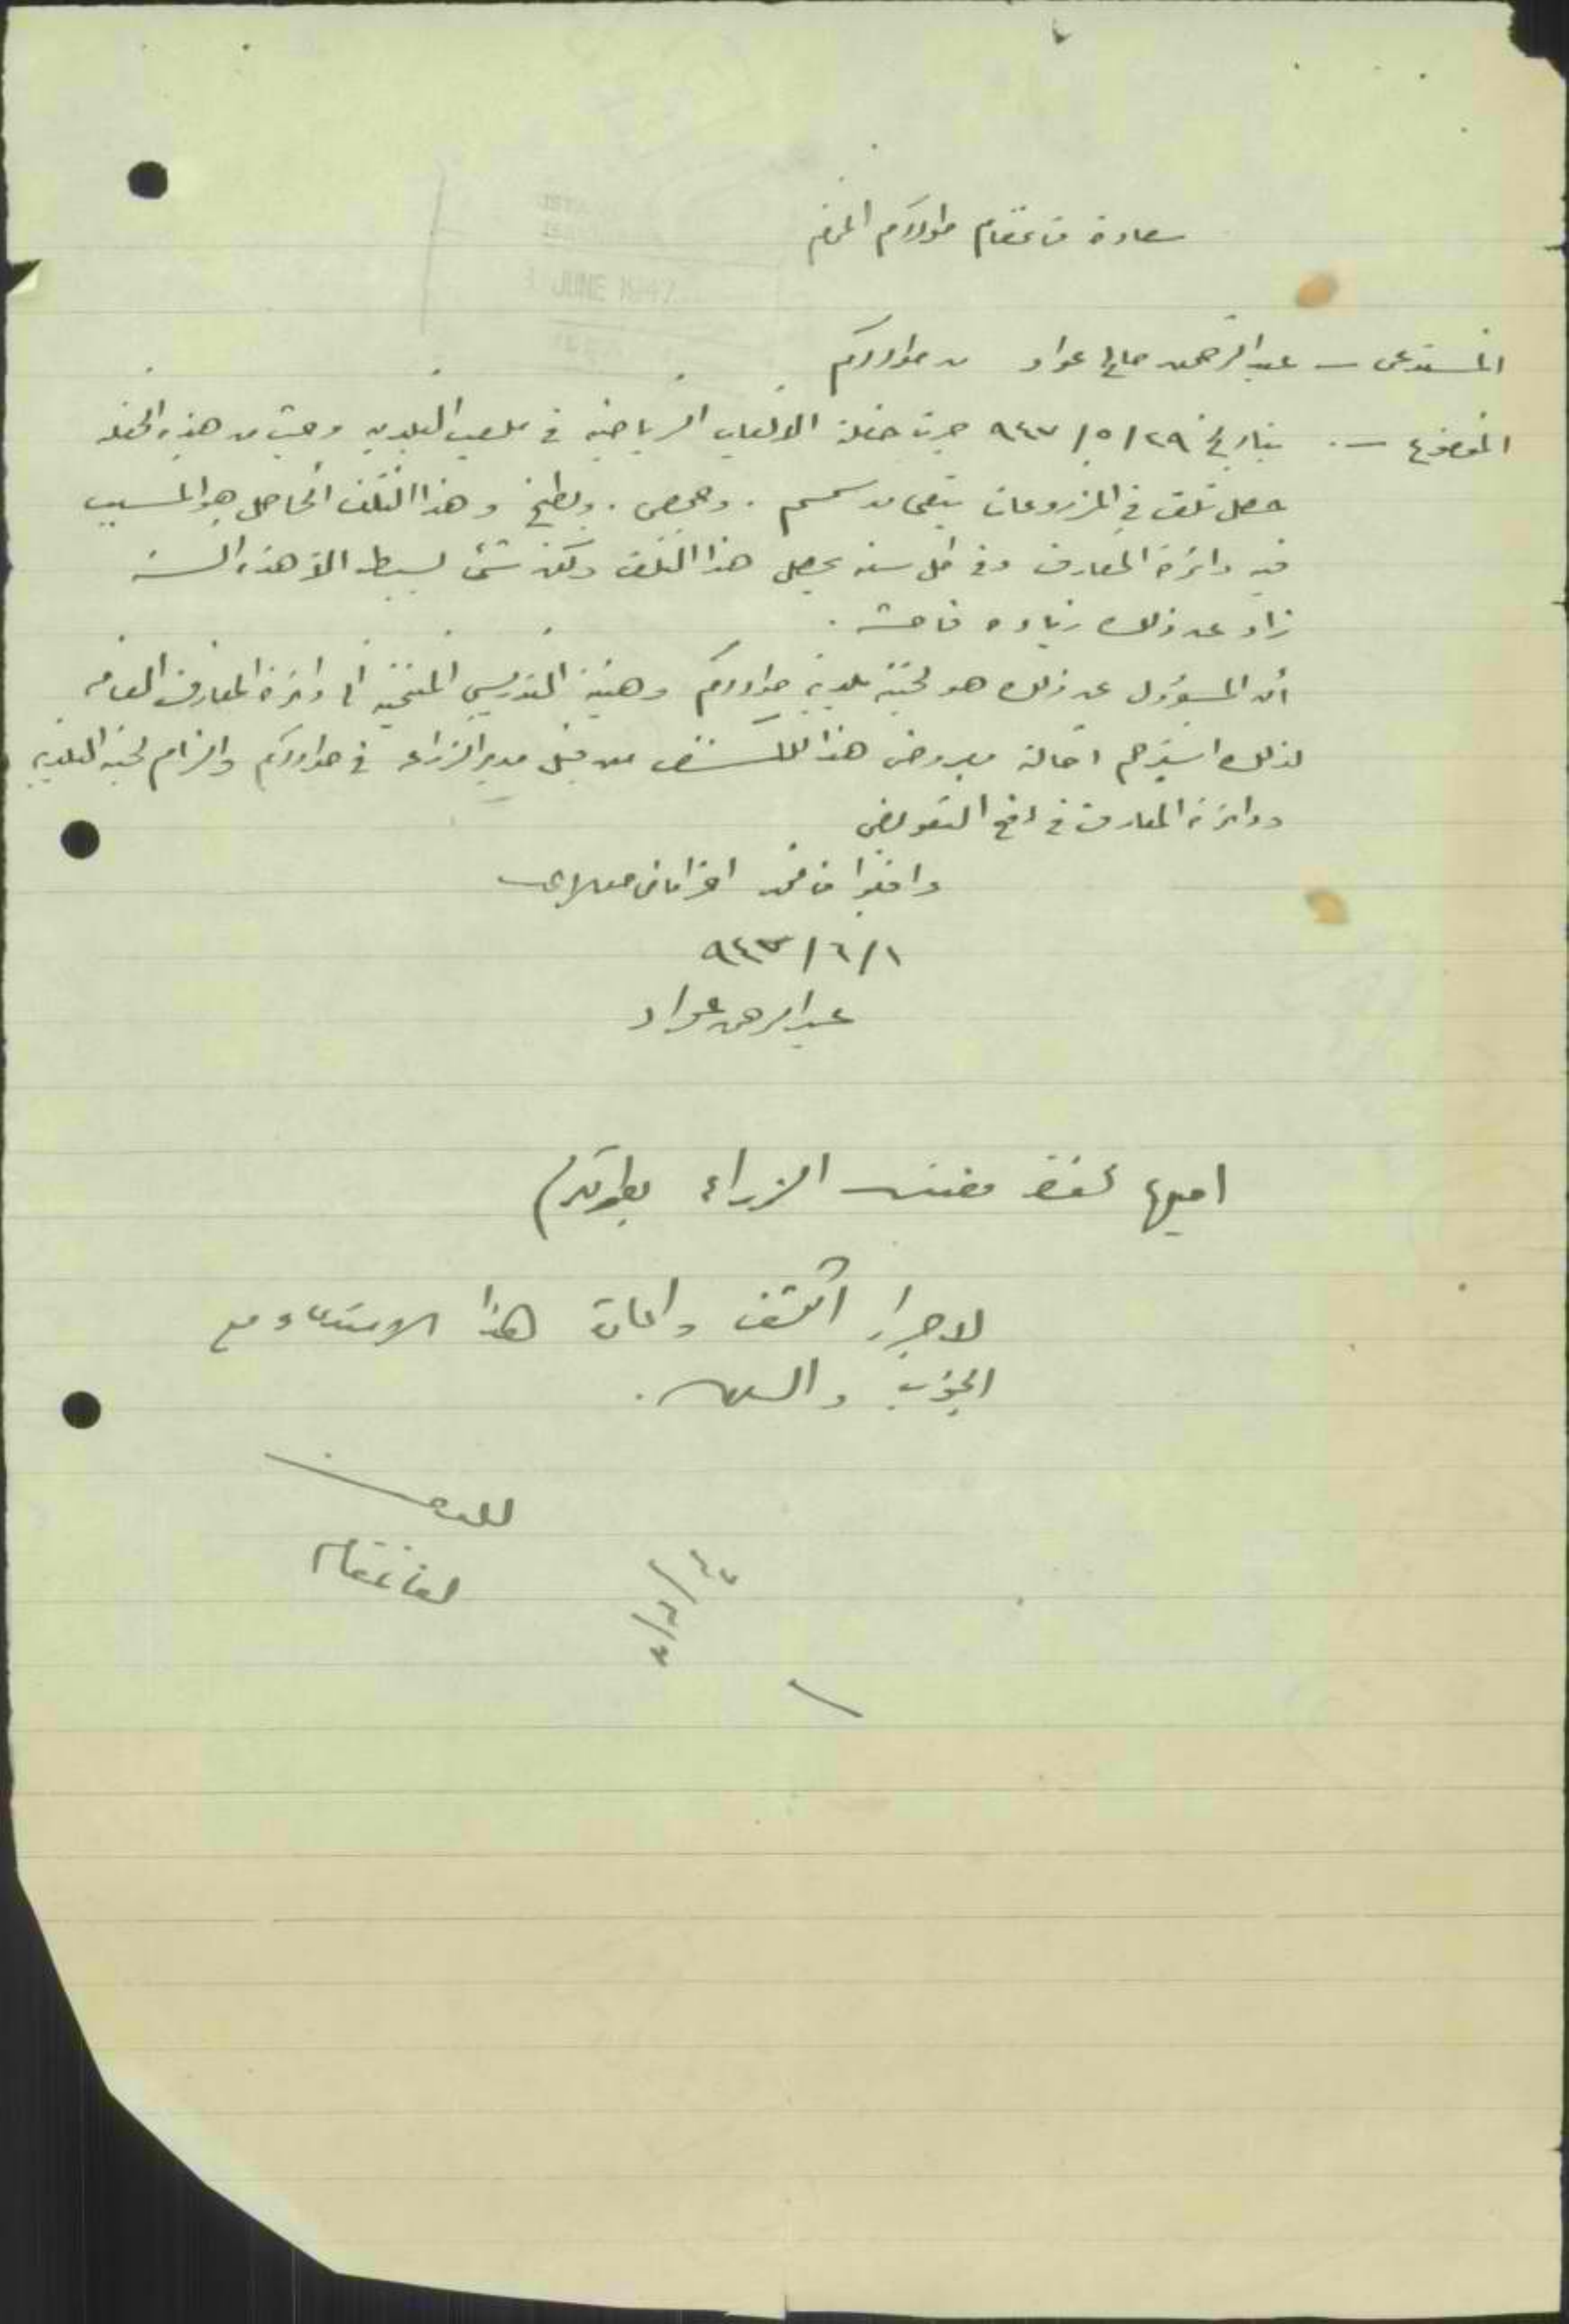 سعادة قائمقام طولكرم المحترم
JUNE 1947
المستدعى – عبد الرحمن صالح عواد من طولكرم
الموضوع – . بتاريخ ٢٩/٥/٩٤٧ جرت حفلة الالعاب الرياضيه في ملعب البلديه وحيث من هذه الحفله
حصل تلف في المزروعات بتعتى من سمسم . وحمص . وبطيخ وهذا التلف الحاصل هو المسبب
فيه دائرة المعارف وفي كل سنه يحصل هذا التلف ولكن شئ بسيط الا هذه السنه
زاد عن ذلك زياده فاحشه .
أن المسؤول عن ذلك هو لجنة بلدية طولكرم وهيئة التدريس المنتميه الى دائرة المعارف العامه
لذلك استرحم احالة معروضى هذا للكشف من قبل مدير الزراعه في طولكرم والزام لجنة البلديه
ودائرة المعارف في دفع التعويض
واقبلوا فائق احترامات سيدي
١/٦/٩٤٧
عبد الرحمن عواد
احيلها لحضرة مفتش الزراعه بطولكرم
لاجراء الكشف واعادة هذا الاستدعاء مع
الجواب والسلام .
قائمقام
٣/٦/٤٧